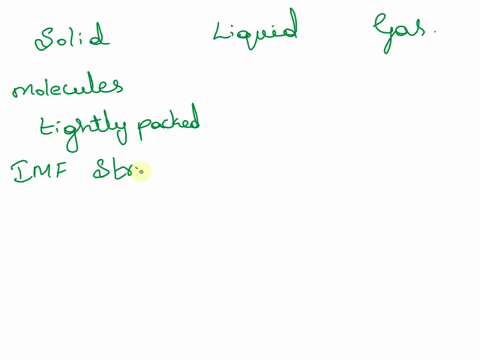 Solid Liquid Gas.
molecules
tightly packed
IMF Str